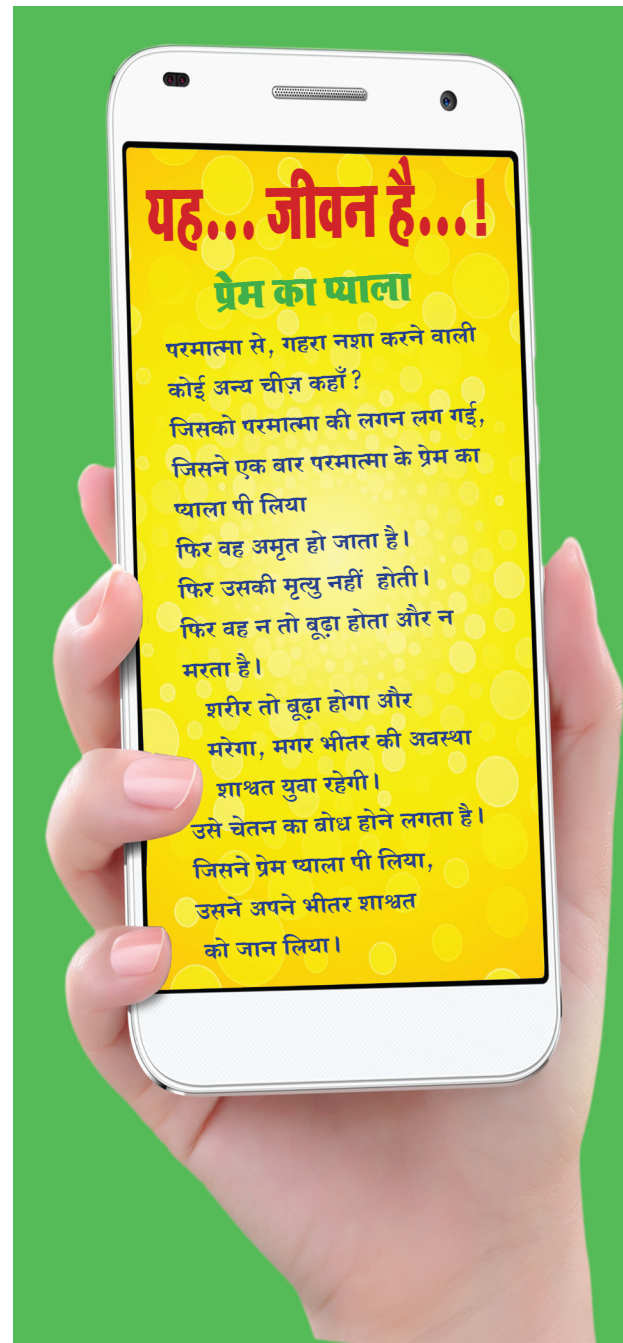 यह... जीवन है...!
प्रेम का प्याला
परमात्मा से, गहरा नशा करने वाली
कोई अन्य चीज़ कहाँ?
जिसको परमात्मा की लगन लग गई,
जिसने एक बार परमात्मा के प्रेम का
प्याला पी लिया
फिर वह अमृत हो जाता है।
फिर उसकी मृत्यु नहीं होती।
फिर वह न तो बूढ़ा होता और न
मरता है।
शरीर तो बूढ़ा होगा और
मरेगा, मगर भीतर की अवस्था
शाश्वत युवा रहेगी।
उसे चेतन का बोध होने लगता है।
जिसने प्रेम प्याला पी लिया,
उसने अपने भीतर शाश्वत
को जान लिया।